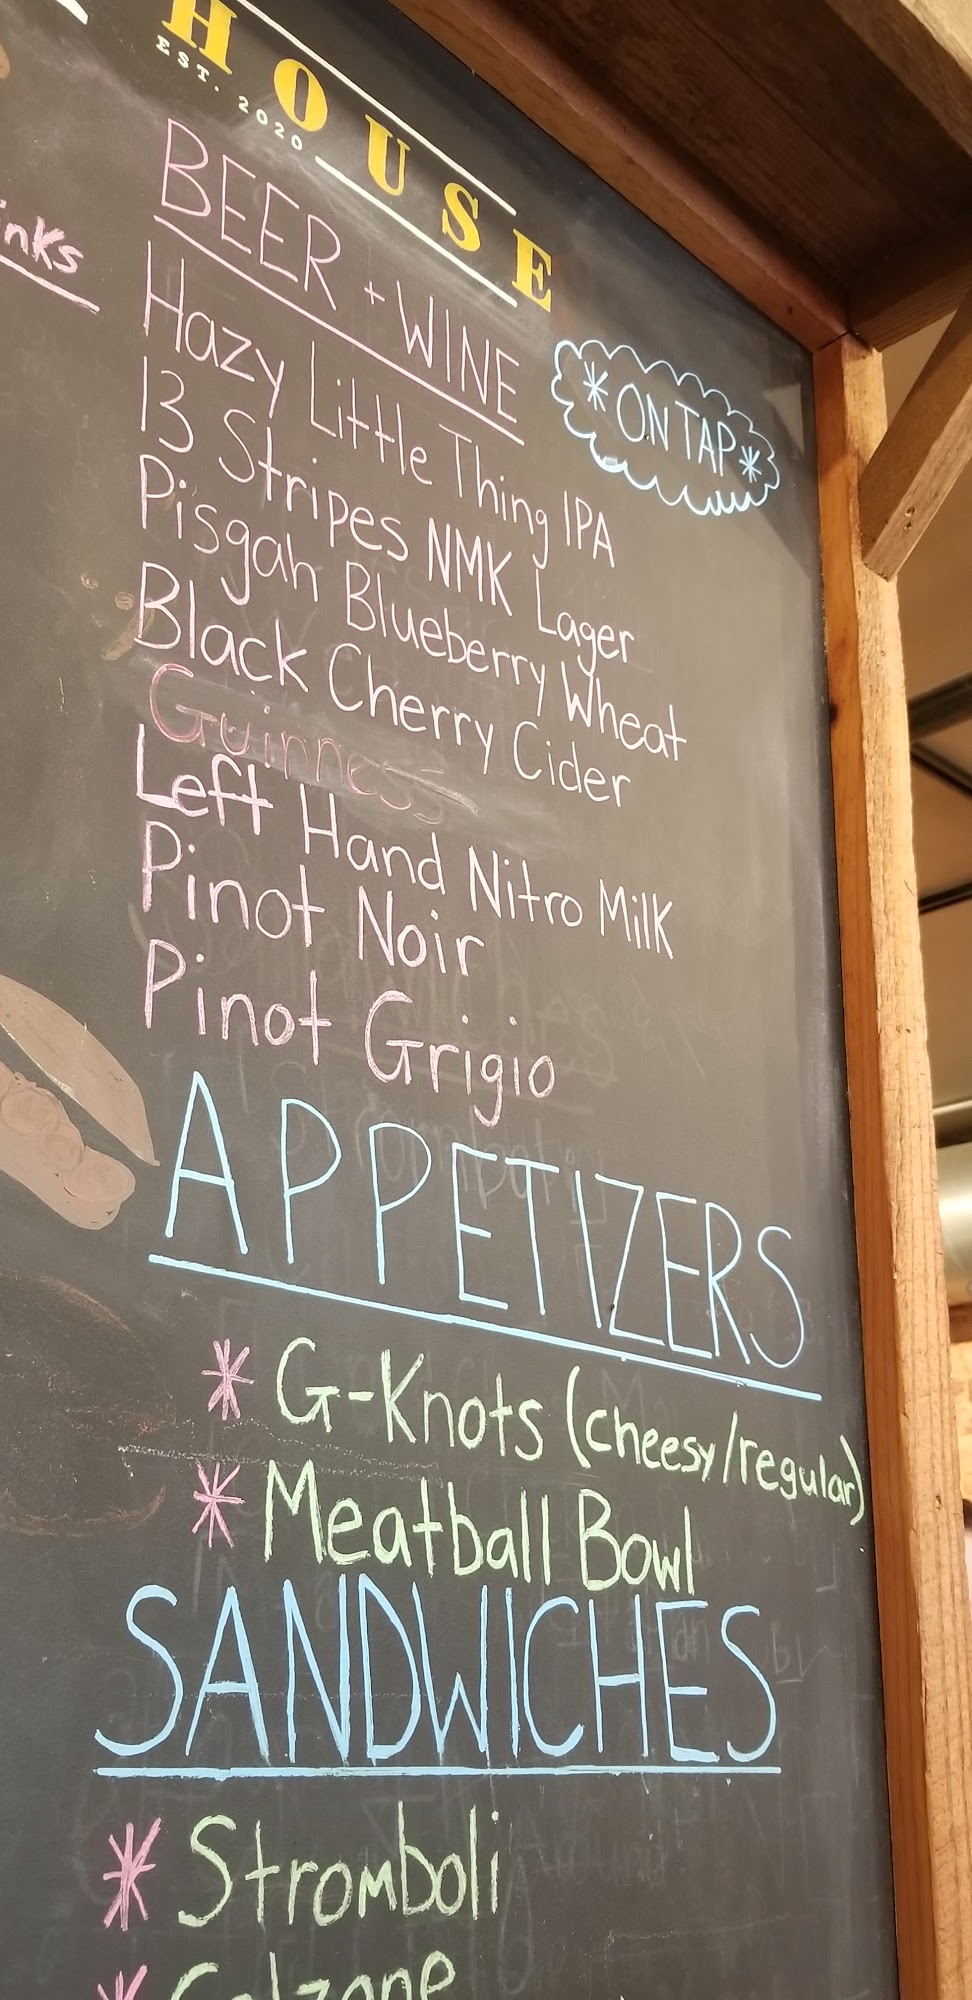 HOUSE
EST. 2020
inks
BEER + WINE
*ON TAP*
Hazy Little Thing IPA
13 Stripes NMK Lager
Pisgah Blueberry Wheat
Black Cherry Cider
Guinness
Left Hand Nitro Milk
Pinot Noir
Pinot Grigio
APPETIZERS
* G-Knots (cheesy/regular)
* Meatball Bowl
SANDWICHES
* Stromboli
* Calzone